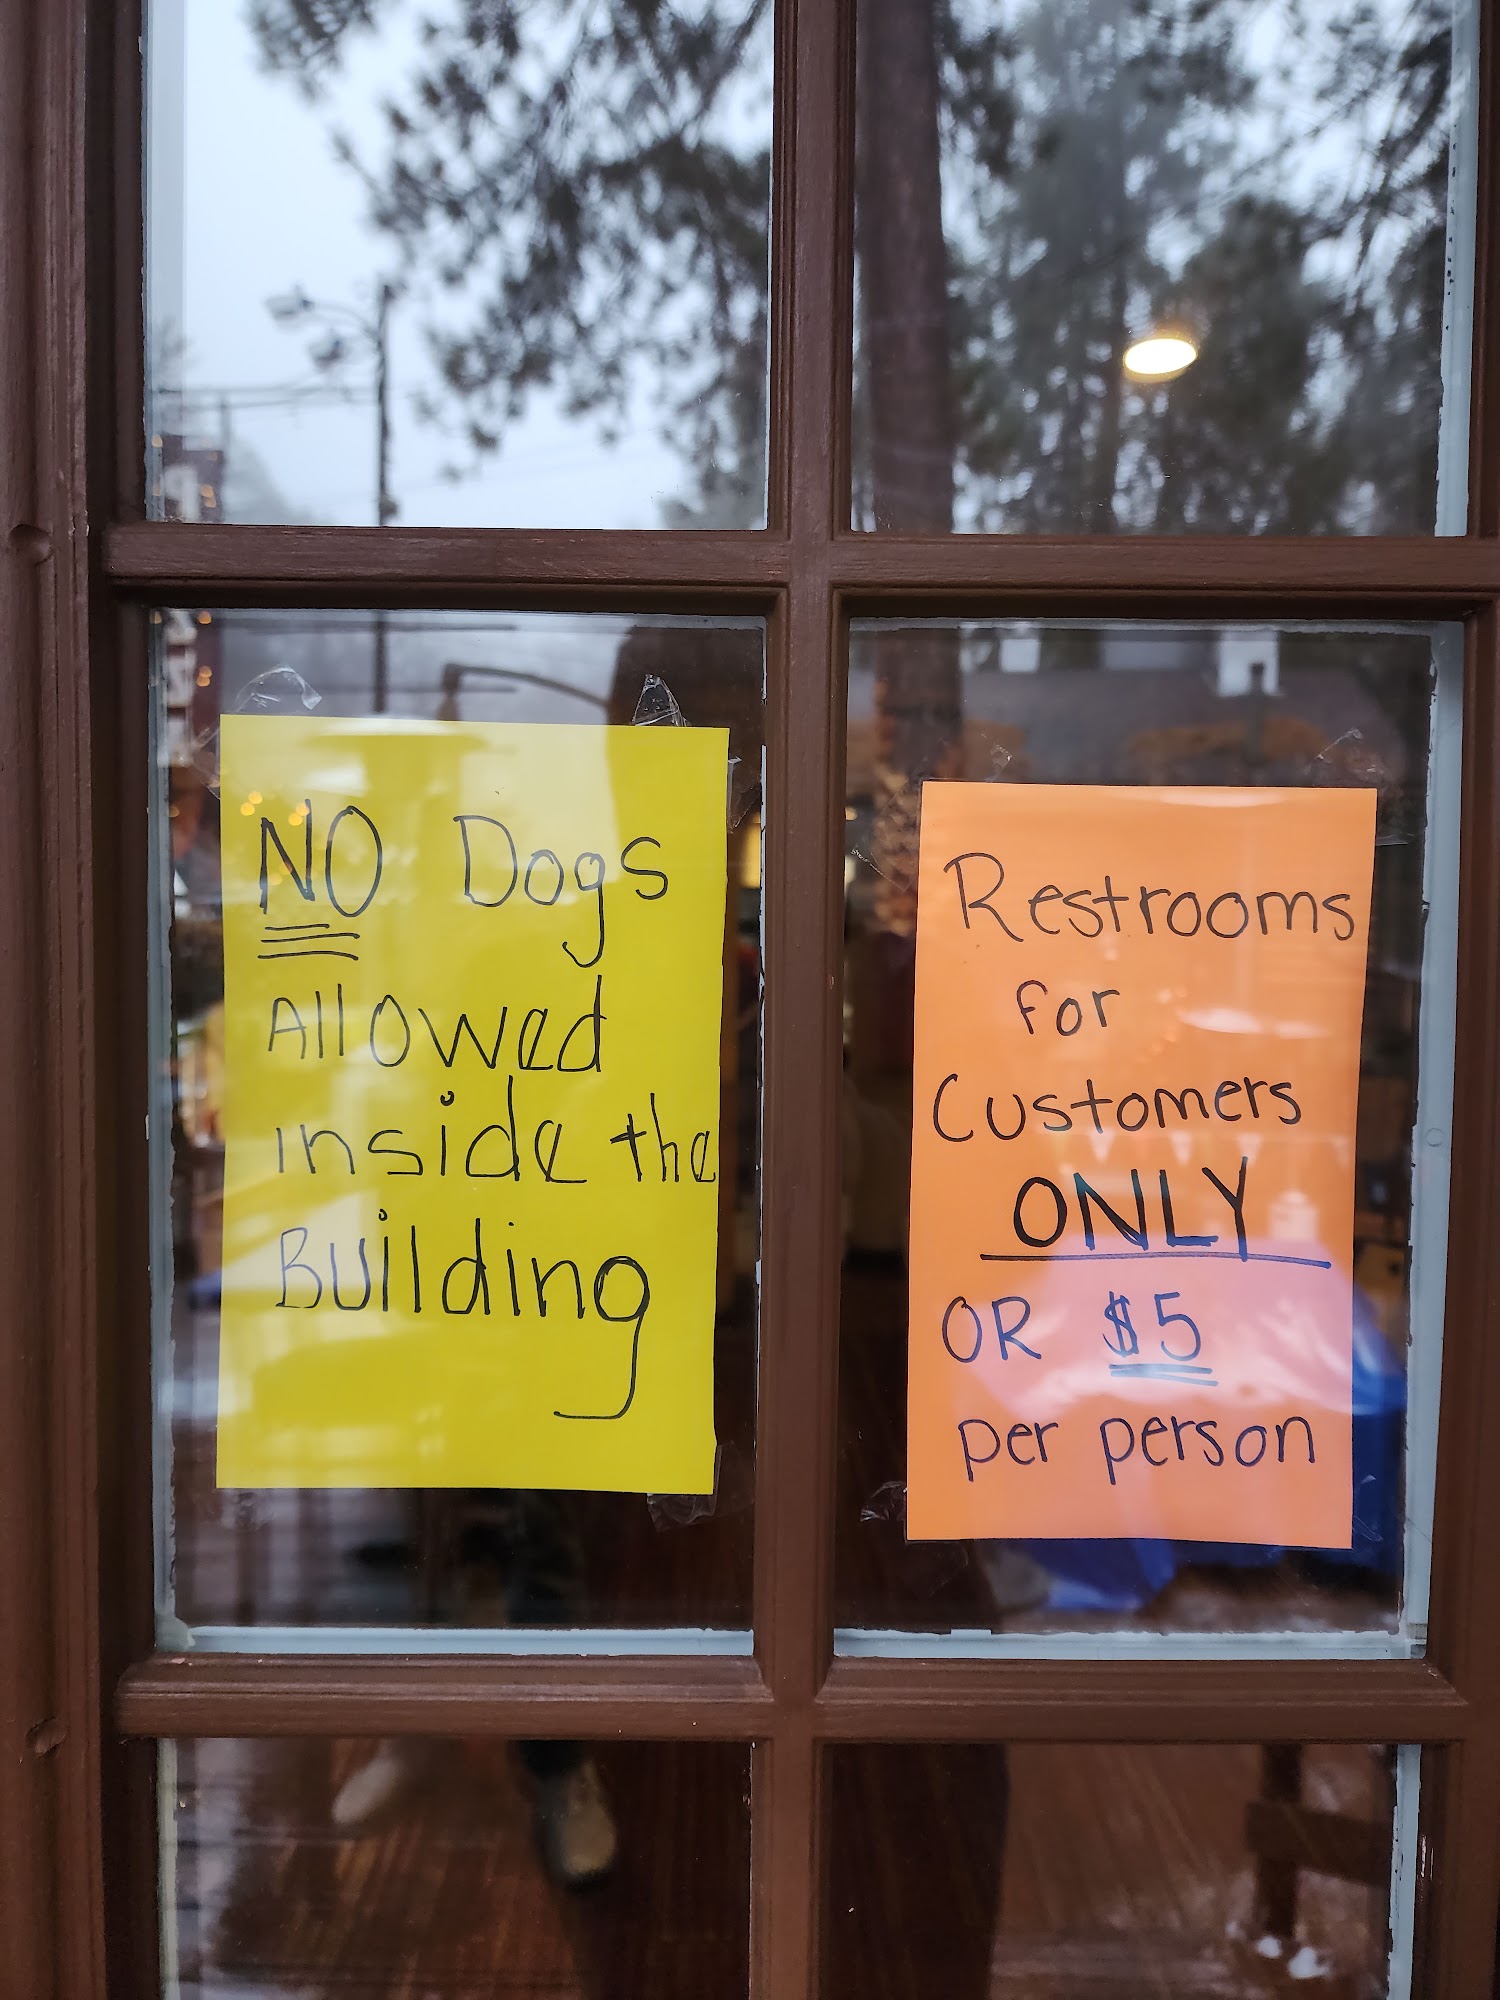 NO Dogs
Allowed
inside the
Building
Restrooms
for
Customers
ONLY
OR $5
per person